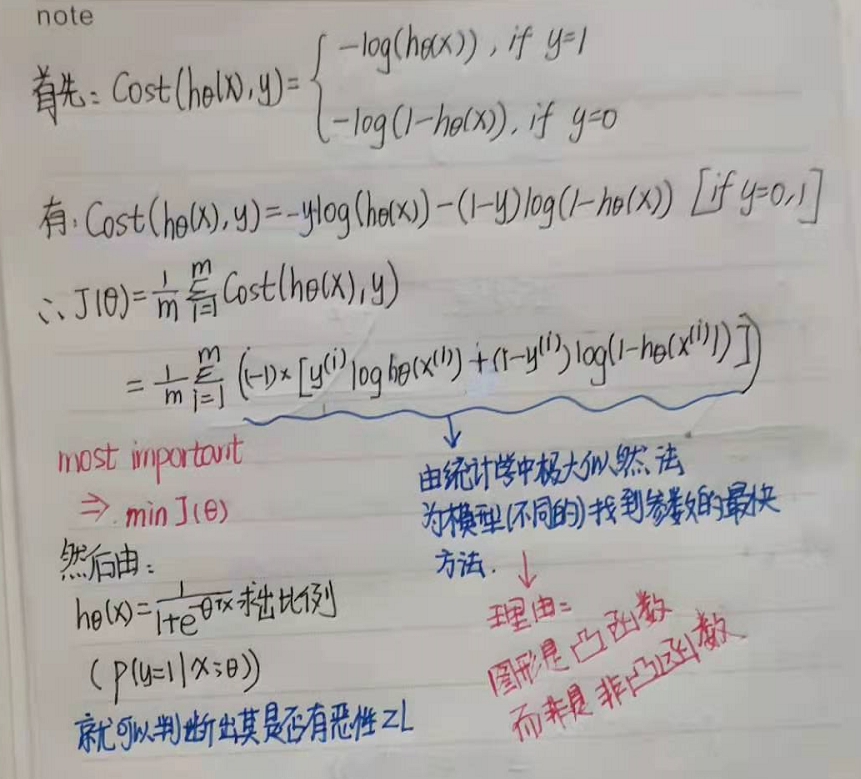 note
首先: Cost(hθ(x),y)= { -log(hθ(x)), if y=1
-log(1-hθ(x)), if y=0
有: Cost(hθ(x),y)=-ylog(hθ(x))-(1-y)log(1-hθ(x)) [if y=0,1]
∴ J(θ)=1/m Σ_{i=1}^{m} Cost(hθ(x),y)
= 1/m Σ_{i=1}^{m} ((-1)×[y⁽ⁱ⁾loghθ(x⁽ⁱ⁾)+(1-y⁽ⁱ⁾)log(1-hθ(x⁽ⁱ⁾))])
most important
⇒ min J(θ)
由统计学中极大似然法
为模型(不同的)找到参数的最快
方法.
理由:
图形是凸函数
而非是非凸函数
然后由:
hθ(x)=1/(1+e^{-θᵀx}) 求出比例
(P(y=1|x;θ))
就可以判断出其是否有恶性ZL